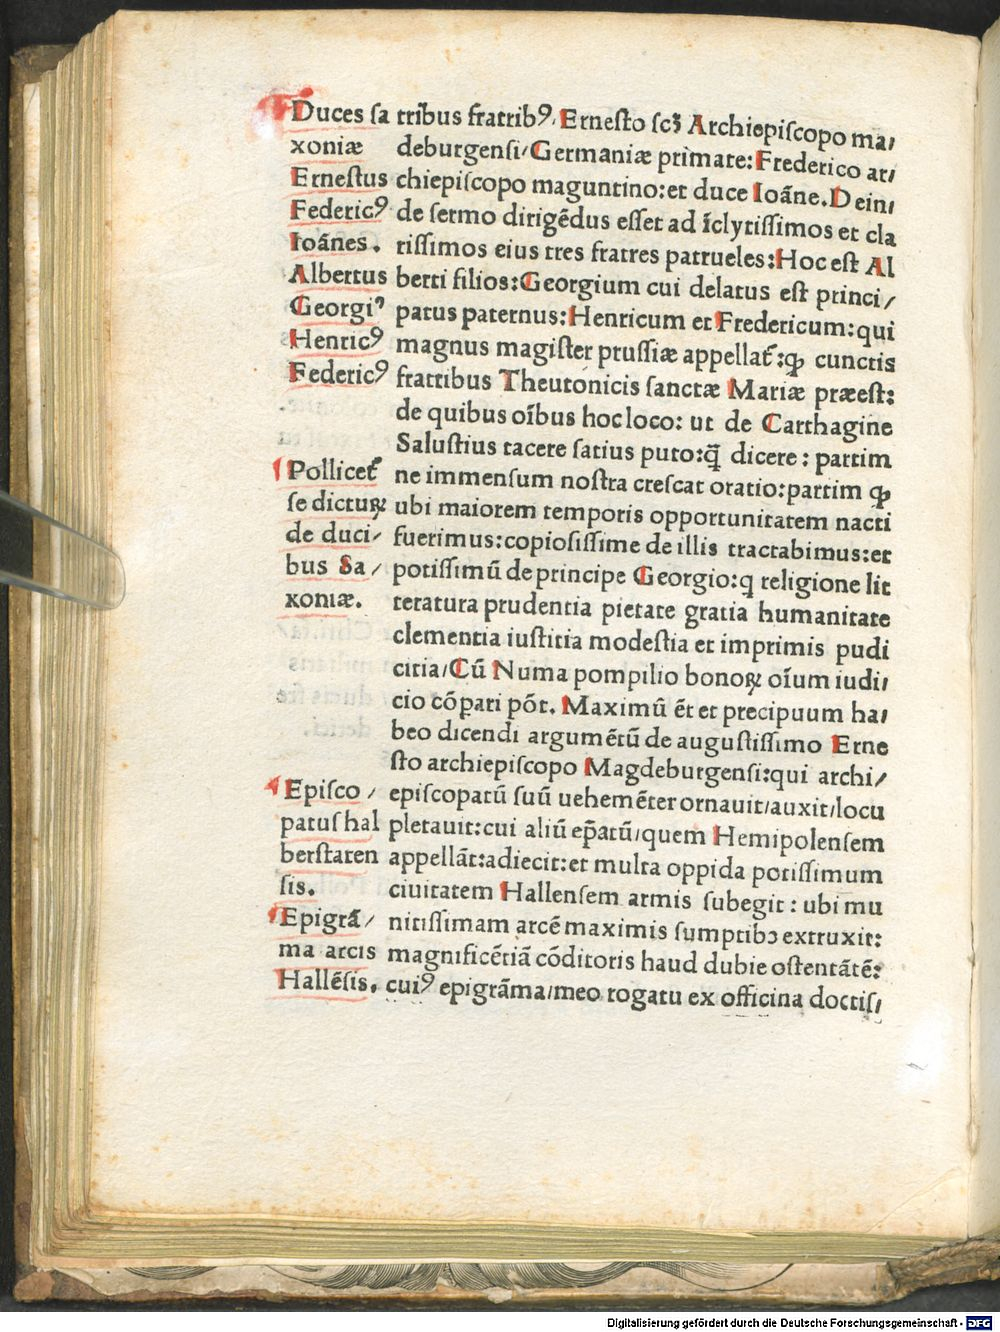 Duces sa
xoniæ
Ernestus
Federicꝰ
Ioānes.
Albertus
Georgiꝰ
Henricꝰ
Federicꝰ
Pollicet᷑
se dicturꝝ
de duci⸗
bus Sa⸗
xoniæ.
Episco⸗
patus hal
berstaten
sis.
Epigrā⸗
ma arcis
Hallēsis.
tribus fratribꝰ, Ernesto scꝫ Archiepiscopo ma⸗
deburgensi/Germaniæ primate: Frederico ar⸗
chiepiscopo maguntino: et duce Ioāne. Dein⸗
de sermo dirigēdus esset ad īclytissimos et cla
rissimos eius tres fratres patrueles: Hoc est Al
berti filios: Georgium cui delatus est princi⸗
patus paternus: Henricum et Fredericum: qui
magnus magister prussiæ appellat᷑: qꝫ cunctis
fratribus Theutonicis sanctæ Mariæ præest:
de quibus oībus hoc loco: ut de Carthagine
Salustius tacere satius puto: q̄ dicere: partim
ne immensum nostra crescat oratio: partim ꝙ
ubi maiorem temporis opportunitatem nacti
fuerimus: copiosissime de illis tractabimus: et
potissimū de principe Georgio: q religione lit
teratura prudentia pietate gratia humanitate
clementia iustitia modestia et imprimis pudi
citia/Cū Numa pompilio bonoꝝ oīum iudi⸗
cio cōpari pōt. Maximū ēt et precipuum ha⸗
beo dicendi argumētū de augustissimo Erne
sto archiepiscopo Magdeburgensi: qui archi⸗
episcopatū suū uehemēter ornauit/auxit/locu
pletauit: cui aliū ep̄atū/quem Hemipolensem
appellāt: adiecit: et multa oppida potissimum
ciuitatem Hallensem armis subegit: ubi mu
nitissimam arcē maximis sumptibꝫ extruxit:
magnificētiā cōditoris haud dubie ostentātē:
cuiꝰ epigrāma/meo rogatu ex officina doctis⸗
Digitalisierung gefördert durch die Deutsche Forschungsgemeinschaft - DFG